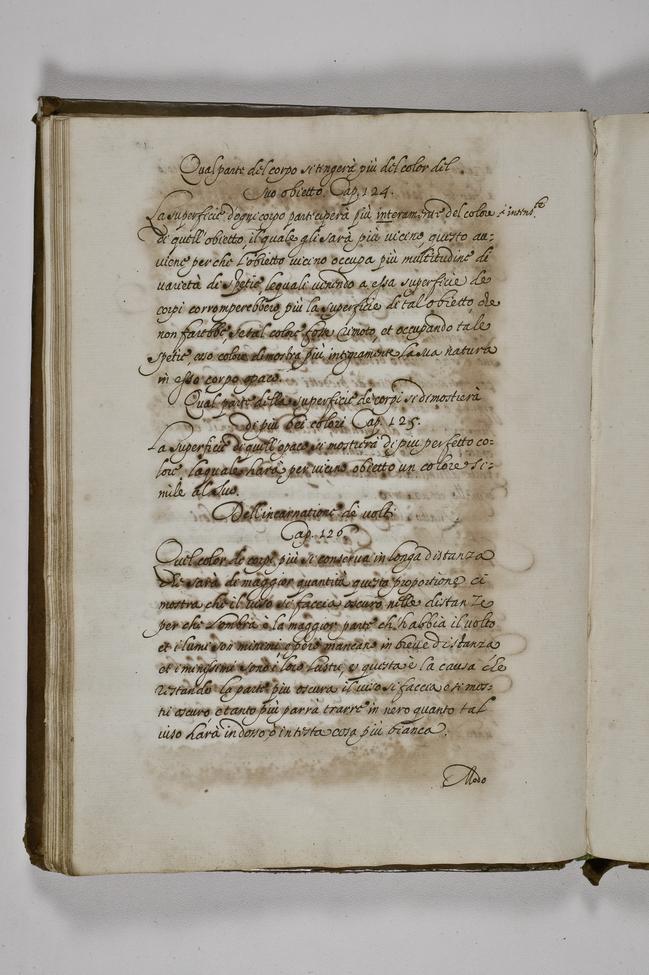 Qual parte del corpo si tingerà più del color del
suo obietto. Cap. 124.
La superficie d'ogni corpo parteciperà più interamente del colore è intens.te
di quell'obietto, il quale gli sarà più vicino questo au-
uiene perche l'obietto uicino occupa più multitudine di
uarietà di spetie lequali uenendo a essa superficie de
corpi corromperebbero più la superficie di tal obietto che
non farebbe se tal colore fosse rimoto, et occupando tale
spetie esso colore dimostra più integramente la sua natura
in esso corpo opaco.
Qual parte della superficie de corpi si dimostrerà
di più bei colori Cap. 125.
La superficie di quell'opaco si mostrerà di più perfetto co-
lore, laquale harà per vicino obietto un colore si-
mile al suo.
Dell'incarnatione de uolti
Cap. 126
Quel color de corpi più si conserva in longa distanza
che sarà de maggior quantità questa proportione ci
mostra che il uiso si faccia oscuro nelle distanze
per che l'ombra è la maggior parte ch'habbia il uolto
et i lumi son minimi e però mancano in breue distanza
et i minissimi sono i loro lustri, e questa è la causa che
restando la parte piu oscura il uiso si faccia e si mos-
tri oscuro e tanto più parrà trarre in nero quanto tal
uiso harà in dosso o in testa cosa più bianca.
Modo